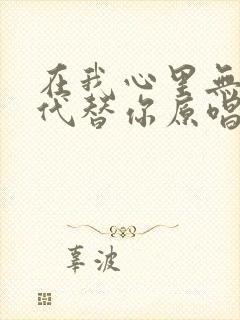 在我心里無
代替你原唱
辜波